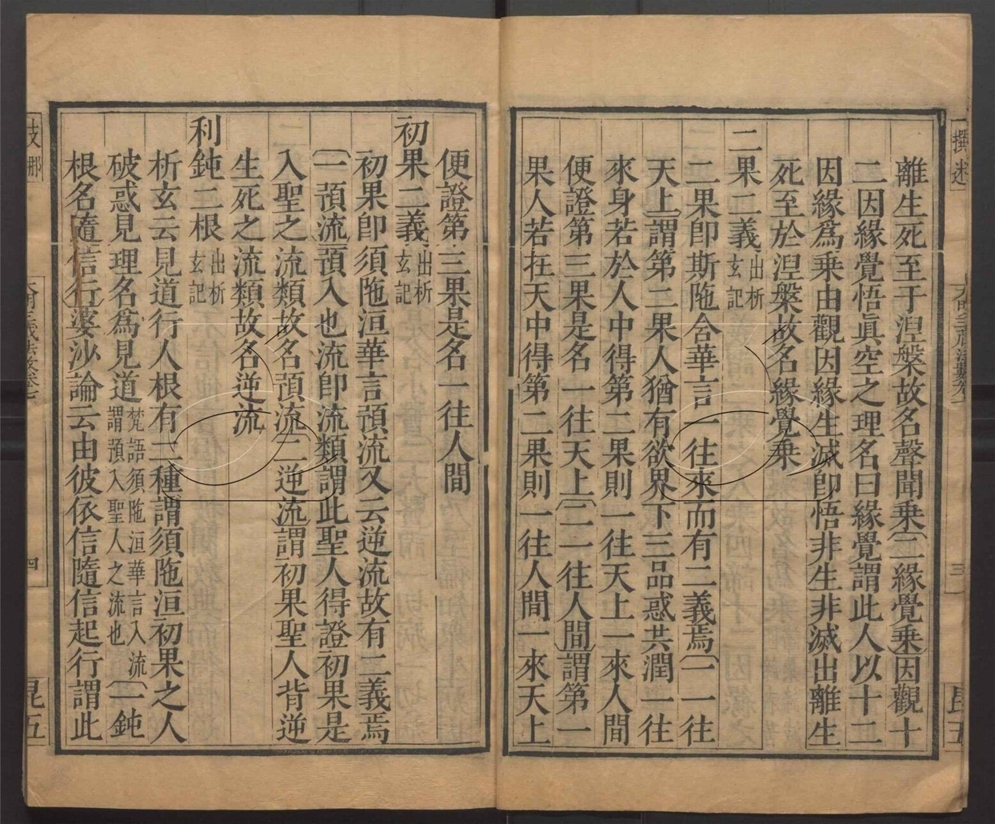 離生死至于涅槃故名聲聞乘〔二緣覺乘〕因觀十
二因緣覺悟眞空之理名曰緣覺謂此人以十二
因緣爲乘由觀因緣生滅卽悟非生非滅出離生
死至於涅槃故名緣覺乘
二果二義出析玄記
二果卽斯陁含華言一往來而有二義焉〔一一往
天上〕謂第二果人猶有欲界下三品惑共潤一往
來身若於人中得第二果則一往天上一來人間
便證第三果是名一往天上〔二一往人間〕謂第一
果人若在天中得第二果則一往人間一來天上
便證第三果是名一往人間
初果二義出析玄記
初果卽須陁洹華言預流又云逆流故有二義焉
〔一預流〕預入也流卽流類謂此聖人得證初果是
入聖之流類故名預流〔二逆流〕謂初果聖人背逆
生死之流類故名逆流
利鈍二根出析玄記
析玄云見道行人根有二種謂須陁洹初果之人
破惑見理名爲見道梵語須陁洹華言入流謂預入聖人之流也〔一鈍
根〕名隨信行婆沙論云由彼依信隨信起行謂此
三
四
昆五
昆五